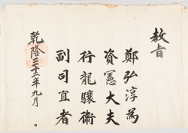 教旨
鄭弘淳爲
資憲大夫
行龍驤衛
副司直者
乾隆三十三年九月